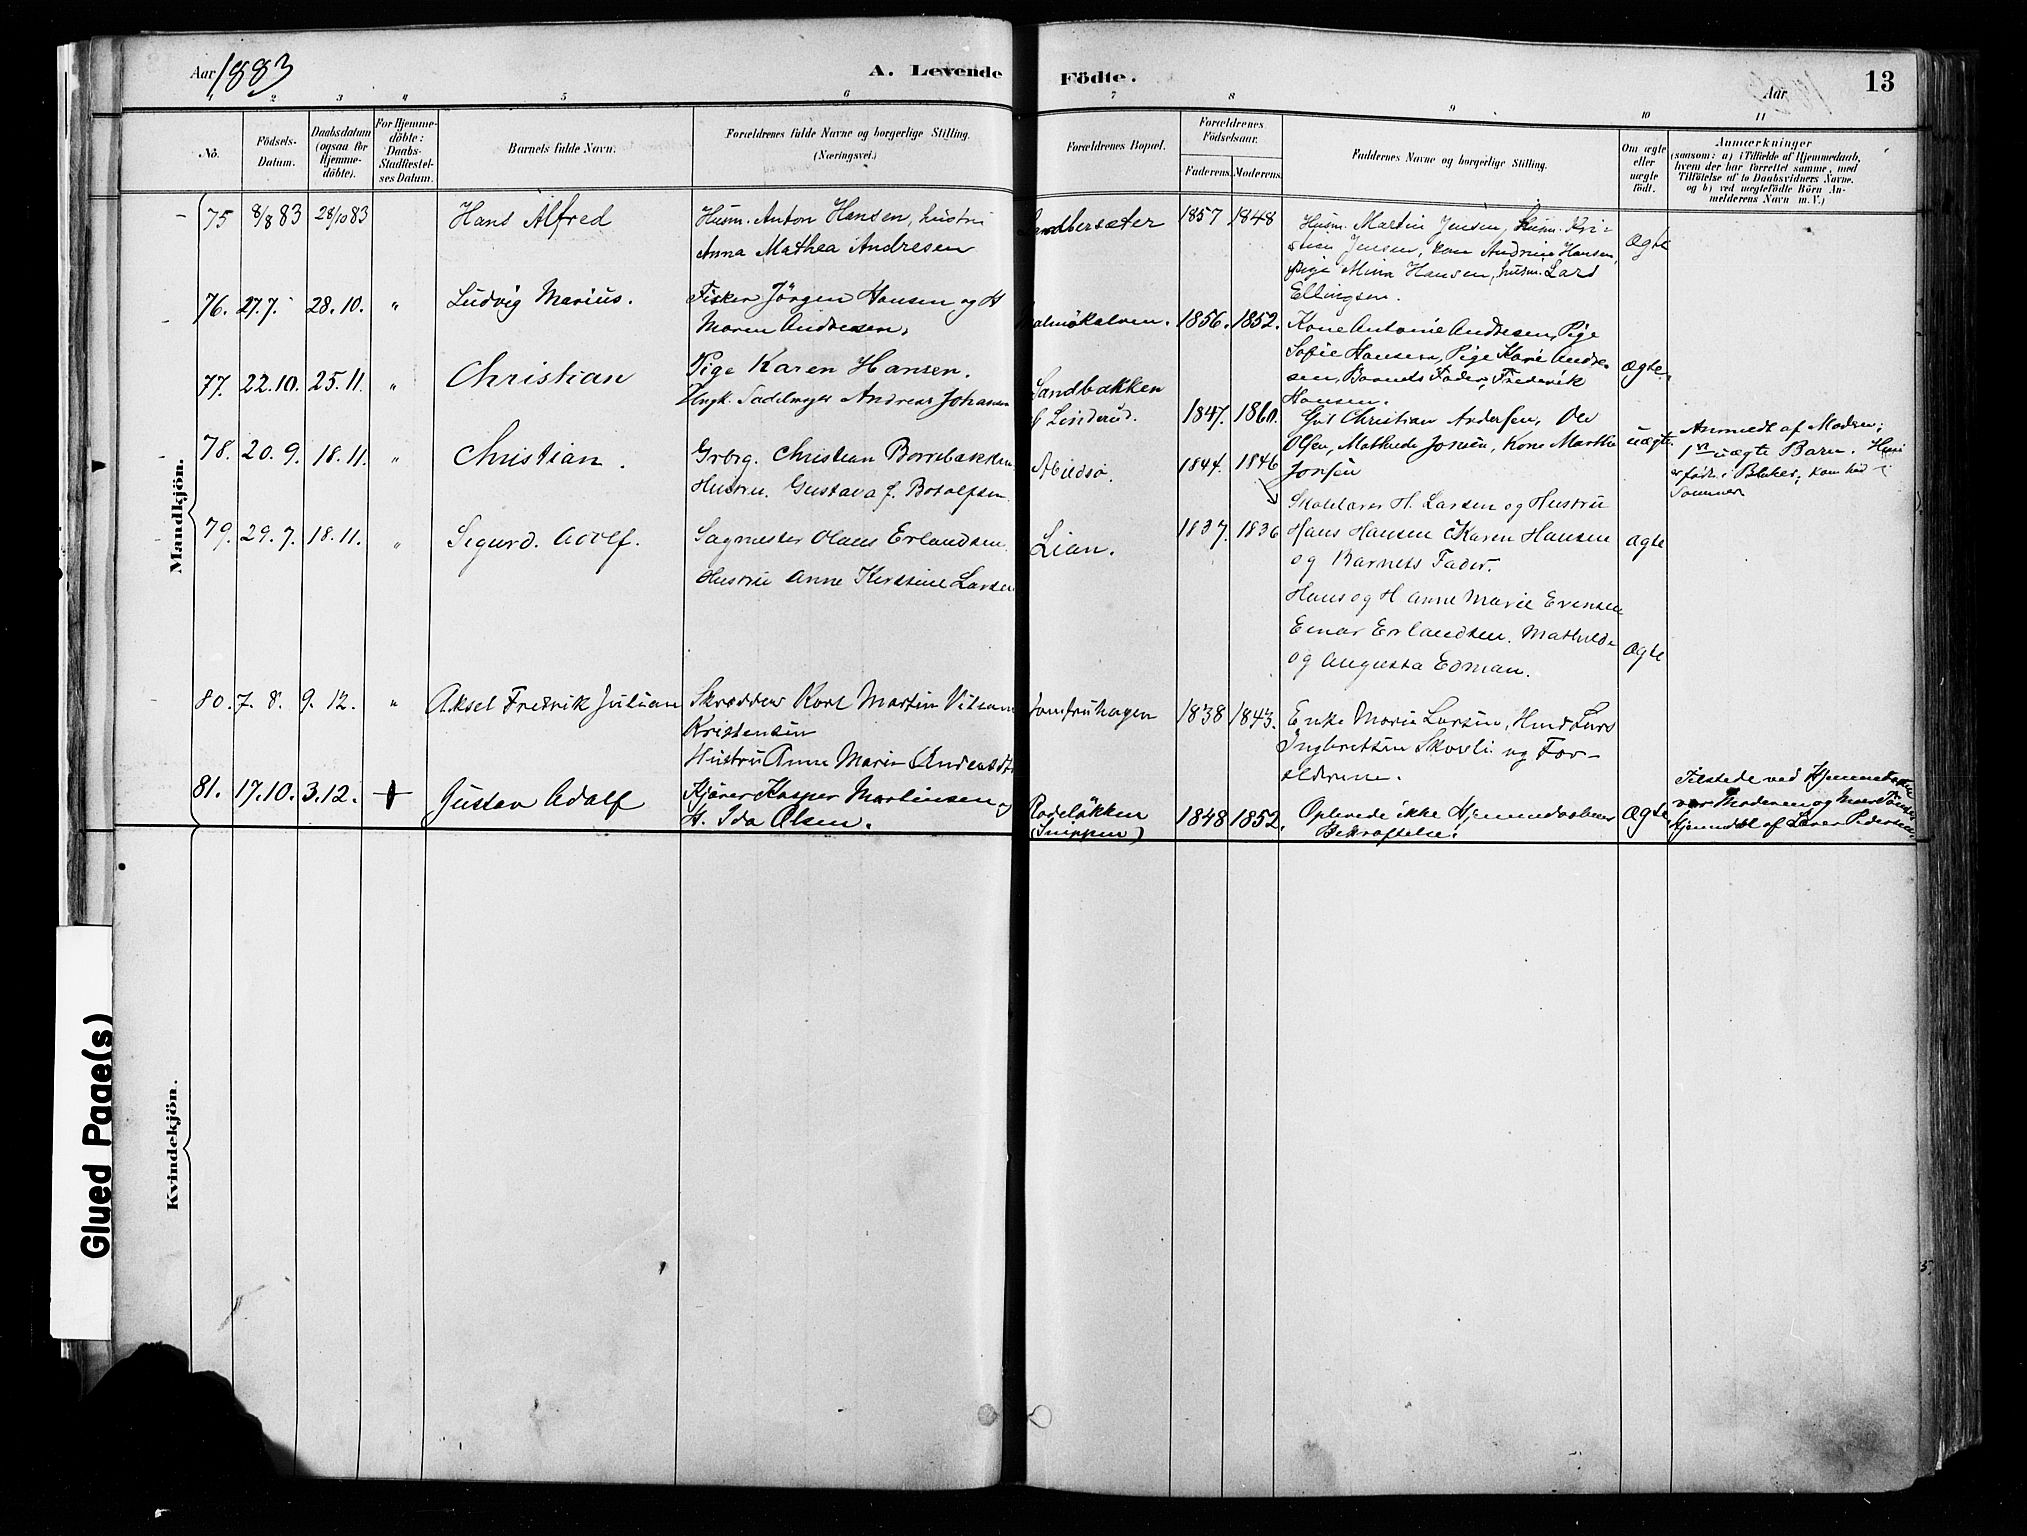 Aar 1883
A. Levende
Födte.
Aar
13
1 2 3 4 5 6 7 8 9 10 11
No.
Födsels-
Datum.
Daabsdatum
(ogsaa for
Hjemme-
döbte).
For Hjemme-
döbte:
Daabs-
Stadfæstel-
ses Datum.
Barnets fulde Navn.
Forældrenes fulde Navne og borgerlige Stilling.
(Næringsvei.)
Forældrenes Bopæl.
Forældrenes
Födselsaar.
Faderens. Moderens.
Faddernes Navne og borgerlige Stilling.
Om ægte
eller
uægte
födt.
Anmærkninger
(saasom: a) i Tilfælde af Hjemmedaab,
hvem der har forrettet samme, med
Tilföielse af to Daabsvidners Navne.
og b) ved uægtefödte Börn An-
melderens Navn m.V.)
Mandkjön.
75 8/8 83 28/10 83
Hans Alfred
Husm. Anton Hansen, hustru
Anna Mathea Andresen
Sandbersæter
1857 1848
Husm. Martin Jensen, Husm. Kri-
stian Jensen, kone Andrine Hansen,
Pige Mina Hansen, husm. Lars
Ellingsen.
Ægte
76. 27.7. 28.10. "
Ludvig Marius.
Fisker Jörgen Hansen og H
Maren Andresen,
Malmökalven.
1856. 1852.
Kone Antonie Andresen, Pige
Sofie Hansen, Pige Karie Andre-
sen, Barnets Fader, Frederik
Hansen.
Ægte.
77. 22.10. 25.11. "
Christian
Pige Karen Hansen.
Ungk. Sadelmager Andreas Johansen
Sandbakken
Linderud.
1847. 1860.
Christian Andersen, Ole
Olsen, Mathilde Jonsen, Kone Marthe
Jonsen
uægte
Anmeldt af Modren;
1ste uægte Barn. Hun
er født i Blaker; kom hid i
Sommer
78. 20.9. 18.11. "
Christian.
Grbrg. Christian Borrebækken
Hustru. Gustava f. Botolfsen
Abildsø.
1844. 1846
Skolelærer H. Larsen og Hustru
Hans Hansen & Karen Hansen
og Barnets Fader.
Ægte
79. 29.7. 18.11. "
Sigurd. Adolf.
Sagmester Olaus Erlandsen.
Hustru Anne Kirstine Larsen
Lian.
1837. 1836
Hans og H Anne Marie Evensen
Einar Erlandsen. Mathilde
og Augusta Edman.
Ægte
80. 7.8. 9.12. "
Aksel Fredrik Julian
Skrædder Karl Martin
Kristensen
Hustru Anne Marie
Jomfruhagen
1838 1843.
Enke Marie Larsen, Lars
Ingbretsen Skovli og For-
ældrene.
81. 17.10. 3.12.
Gustav Adolf
Kjører Kasper Martinsen og
H. Ida Olsen.
Rodeløkken
(Snippen)
1848 1852.
Oplevede ikke Hjemmedaabens
Bekræftelse.
Ægte
Tilstede ved Hjemmedaaben
var Moderen og
Hjemmdbt af Pedersen
Kvindekjön.
Glued Page(s)